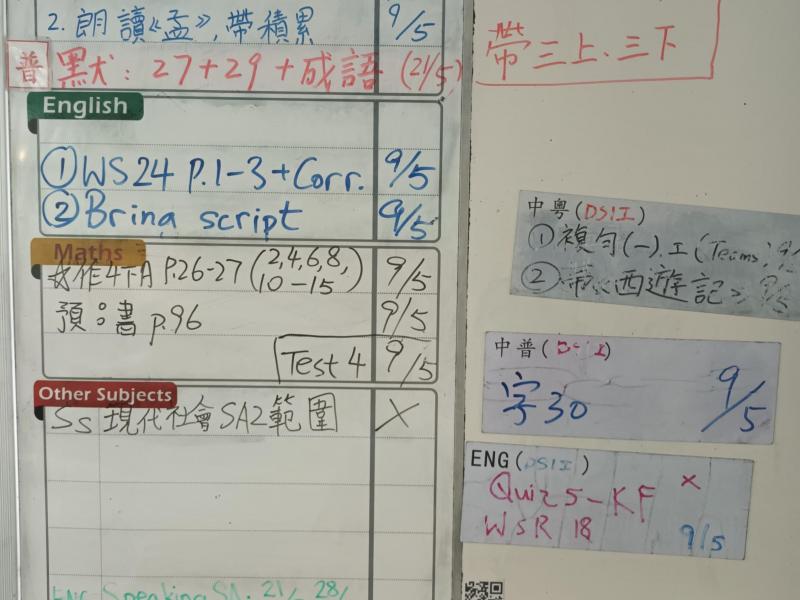 2. 朗讀《孟》, 帶積累 9/5
普 默: 27+29+成語 (21/5)
帶三上、三下
English
① WS24 P.1-3+Corr. 9/5
② Bring script 9/5
Maths
作4下A P.26-27 (2,4,6,8, 10-15) 9/5
預: 書 p.96 9/5
Test 4 9/5
Other Subjects
SS 現代社會SA2範圍 X
Speaking SA: 21/ 28/
中粵(DSII)
① 複句(一).工(Teams) 9/
② 帶《西遊記》 9/5
中普(D I)
字30 9/5
ENG(DSII)
Quiz 5-KF X
WSR 18 9/5